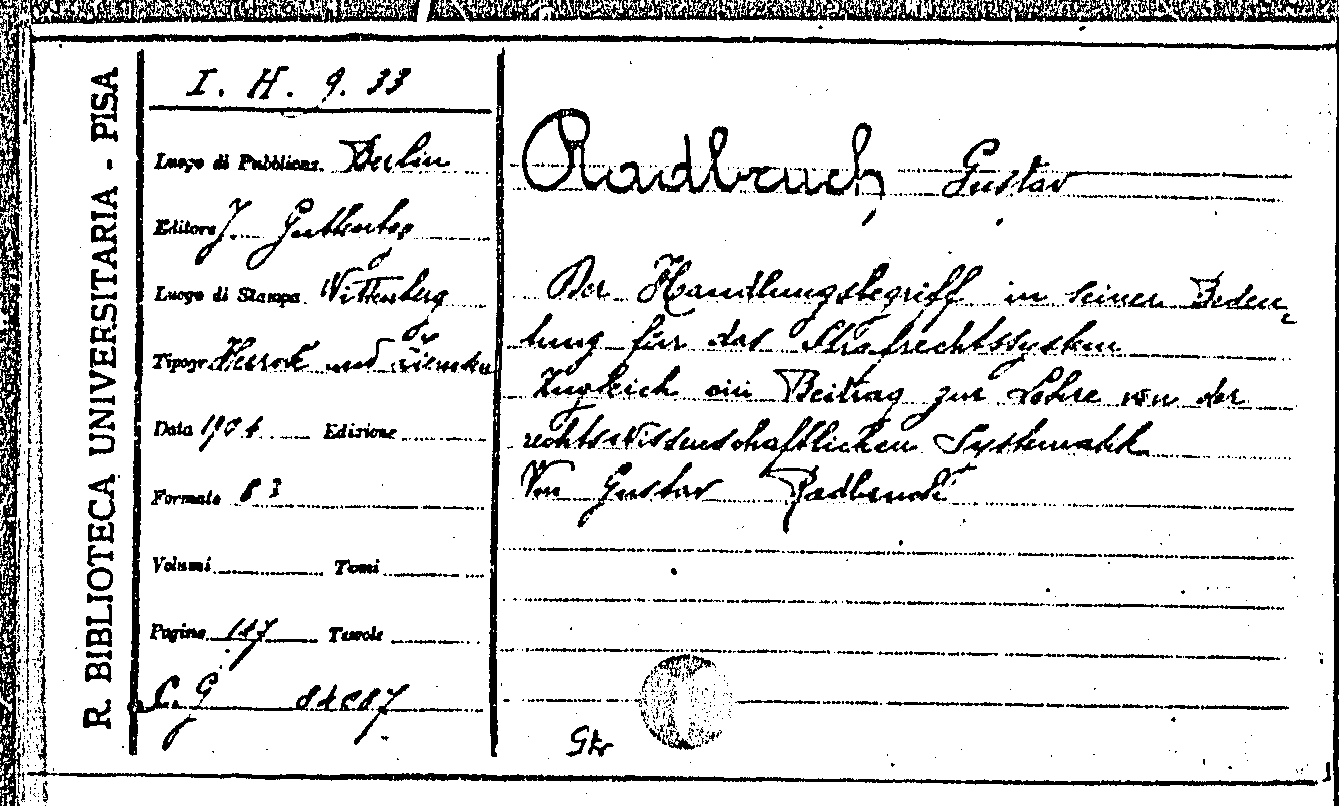 R. BIBLIOTECA UNIVERSITARIA - PISA
I. H. 9. 33
Luogo di Pubblicaz. Berlin
Editore J. Guttentag
Luogo di Stampa Wittenberg
Tipogr. Herrosé und
Data 1904 Edizione
Formato 8º
Volumi Tomi
Pagine 147 Tavole
C. G 84087
Radbruch, Gustav
Der Handlungsbegriff in seiner Bedeu-
tung für das Strafrechtssystem
Zugleich ein Beitrag zur Lehre von der
rechtswissenschaftlichen Systematik
Von Gustav Radbruch